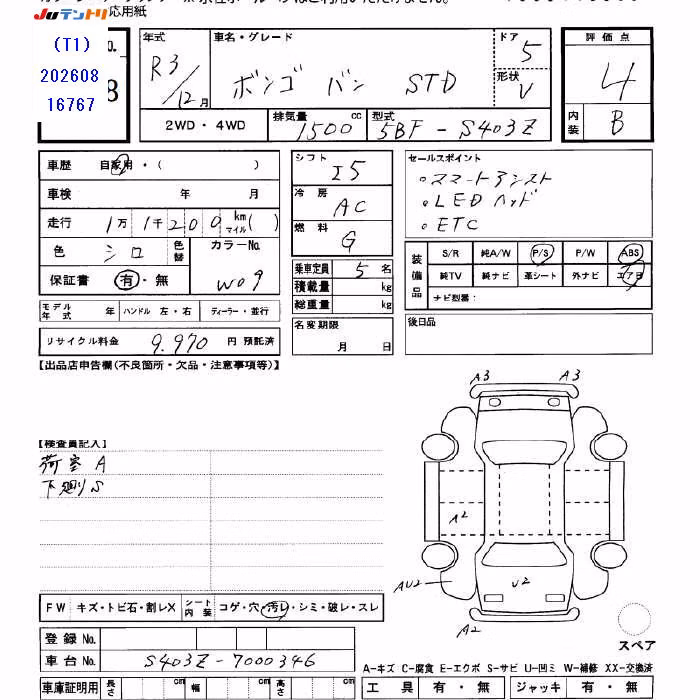 JUテントリ 応用紙
(T1)
202608
16767
o.
8
年式 車名・グレード ドア 評価点
R3/12月 ボンゴ バン STD 5 4
形状 V
2WD・4WD 排気量 1500 cc 型式 5BF-S403Z 内装 B
車歴 自家用・( )
車検 年 月
走行 1万 1千 200 km マイル( )
色 シロ 色替 カラーNo. W09
保証書 有・無
モデル年式 年 ハンドル 左・右 ディーラー・並行
リサイクル料金 9.970 円 預託済
シフト I5
冷房 AC
燃料 G
乗車定員 5 名
積載量 kg
総重量 kg
名変期限
月 日
セールスポイント
・スマートアシスト
・LEDヘッド
・ETC
装備品 S/R 純A/W P/S P/W ABS
純TV 純ナビ 革シート 外ナビ エアB
ナビ型番:
後日品
【出品店申告欄(不良箇所・欠品・注意事項等)】
【検査員記入】
荷室 A
下廻りS
A3 A3
A2
AU2 U2
A2
スペア
FW キズ・トビ石・割レX シート内装 コゲ・穴・汚レ・シミ・破レ・スレ
登録No.
車台No. S403Z-7000346
A-キズ C-腐食 E-エクボ S-サビ U-凹ミ W-補修 XX-交換済
車庫証明用 長さ cm 幅 cm 高さ cm 工具 有・無 ジャッキ 有・無